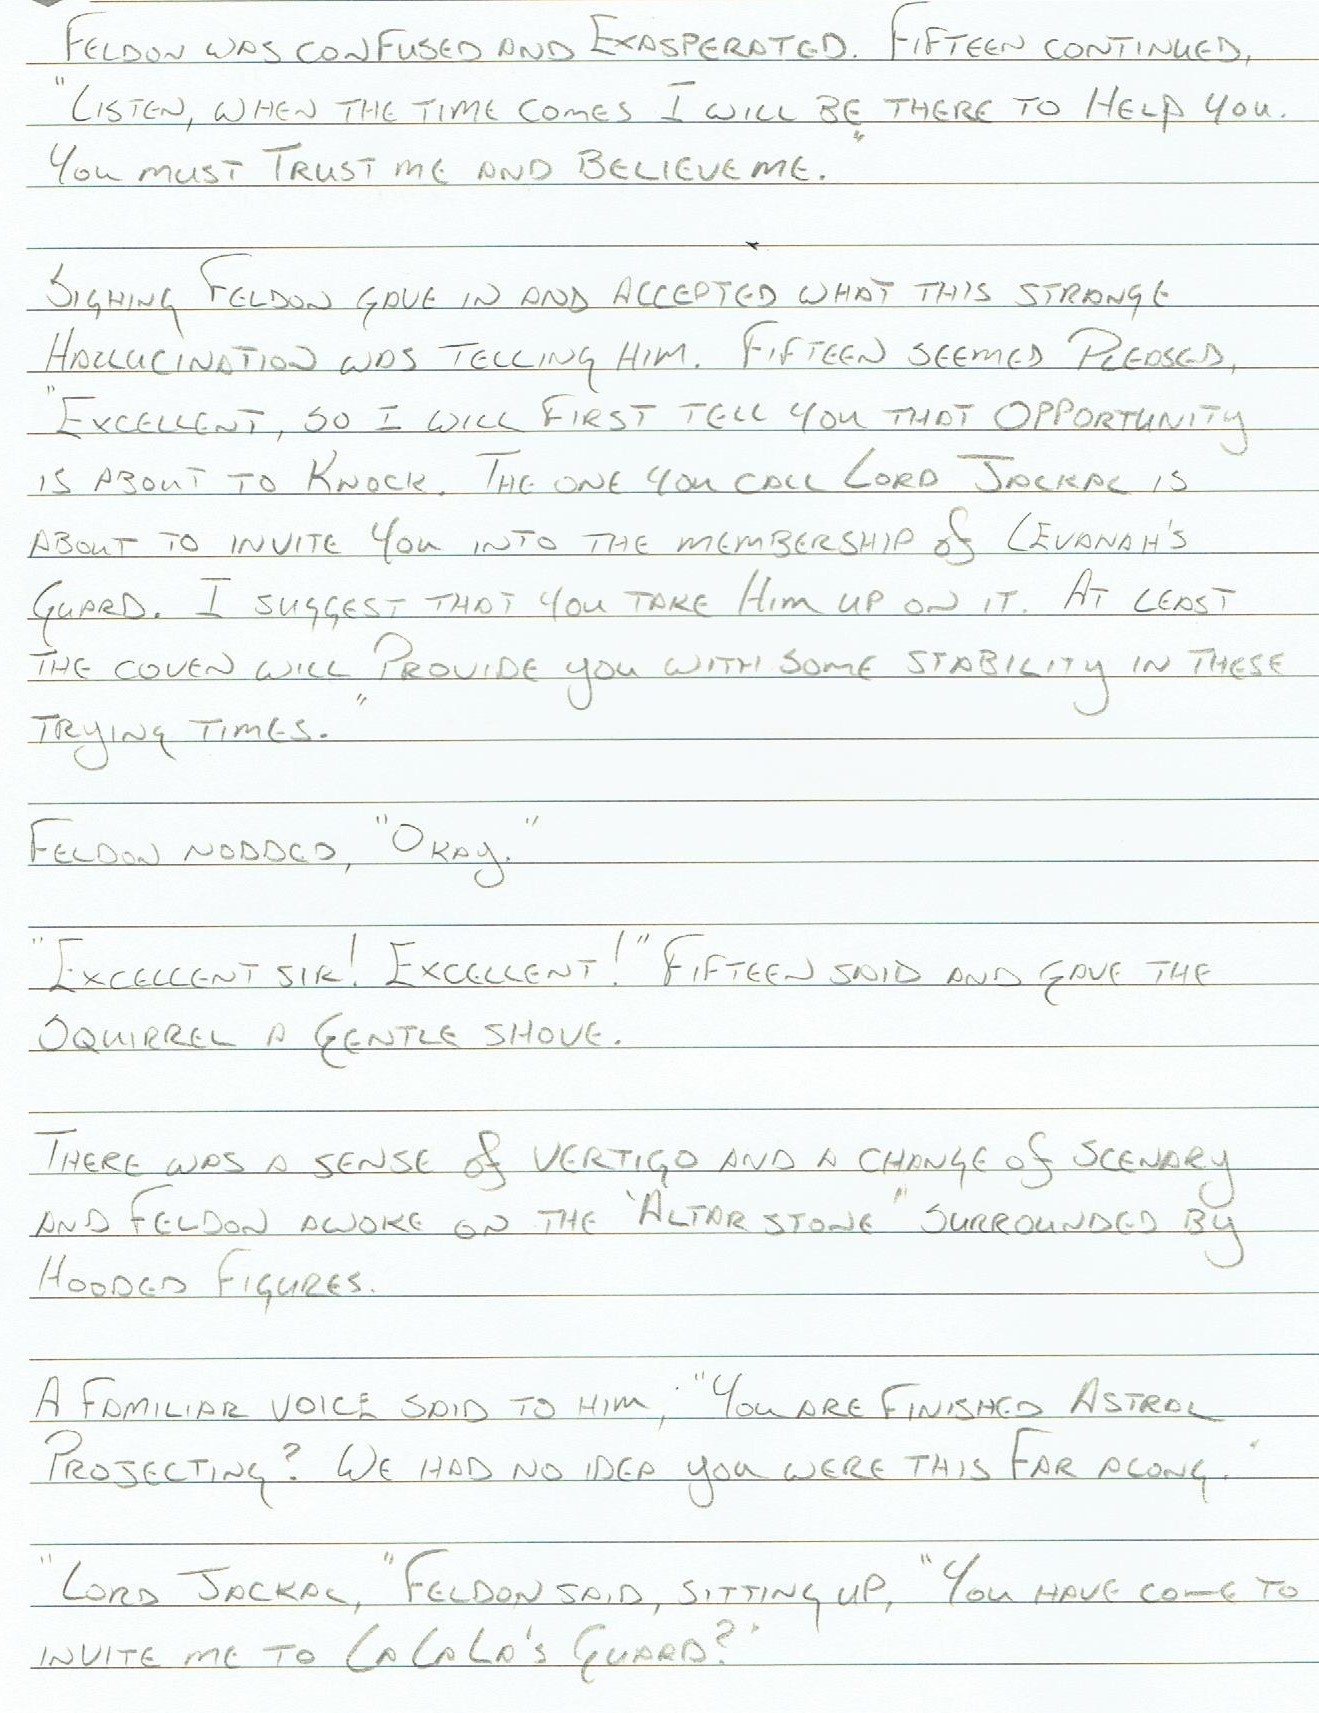 Feldon was confused and Exasperated. Fifteen continued,
"Listen, when the time comes I will be there to Help you.
You must Trust me and Believe me."
Sighing Feldon gave in and accepted what this strange
Hallucination was telling him. Fifteen seemed Pleased,
"Excellent, so I will first tell you that opportunity
is about to Knock. The one you call Lord Jackal is
about to invite you into the membership of Levanah's
Guard. I suggest that you take Him up on it. At least
the coven will Provide you with some stability in these
trying times."
Feldon nodded, "Okay."
"Excellent sir! Excellent!" Fifteen said and gave the
squirrel a gentle shove.
There was a sense of vertigo and a change of scenary
and Feldon awoke on the "Altar stone" surrounded by
Hooded figures.
A familiar voice said to him, "You are finished Astral
Projecting? We had no idea you were this far along."
"Lord Jackal," Feldon said, sitting up, "You have come to
invite me to LaLaLa's Guard?"